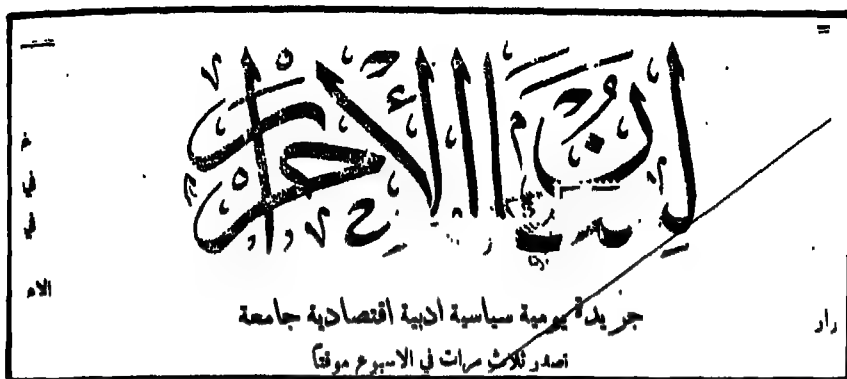 لِسَانُ الأحرار
جريدة يومية سياسية ادبية اقتصادية جامعة
تصدر ثلاث مرات في الاسبوع موقتاً
رار
في
في
الام